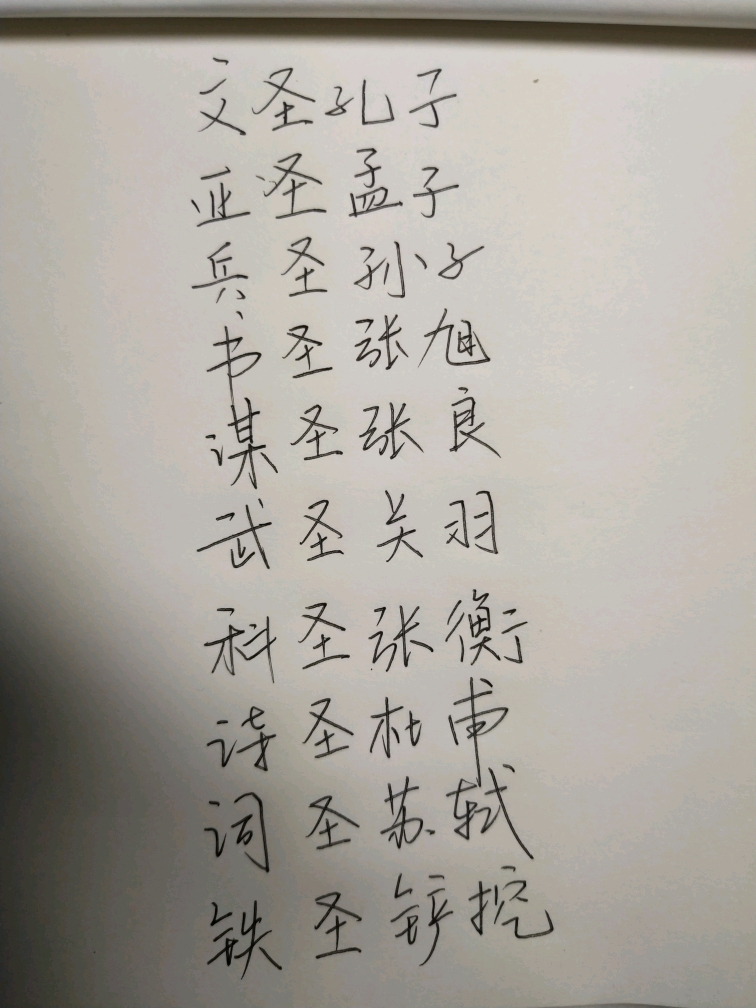 文圣孔子
亚圣孟子
兵圣孙子
书圣张旭
谋圣张良
武圣关羽
科圣张衡
诗圣杜甫
词圣苏轼
铁圣铲挖